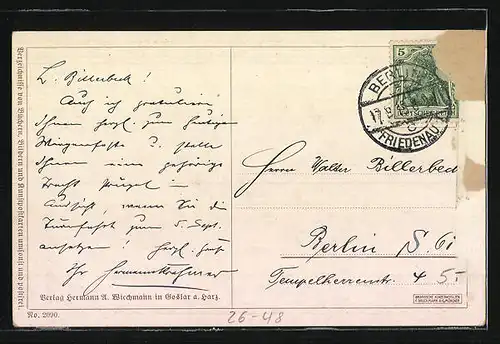 L. Billerbeck!
Auch ich gratuliere
Ihnen herzl. zum heutigen
Wiegenfeste u. stelle
Ihnen eine gehörige
Tracht Prügel in
Aussicht, wenn Sie die
Turnfahrt zum 5. Sept.
ansetzen! Herzl. Gruß
Ihr
Herrn Walter Billerbeck
Berlin S. 61
Tempelherrenstr. 4
5
BERLIN
17.8.
FRIEDENAU
Verzeichnisse von Büchern, Bildern und Kunstpostkarten umsonst und postfrei.
Verlag Hermann A. Wiechmann in Goslar a. Harz.
No. 2090.
26-48